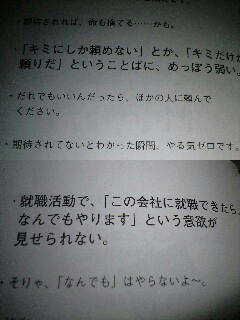 ・期待されれば、命も捨てる……かも。
・「キミにしか頼めない」とか、「キミだけが
頼りだ」ということばに、めっぽう弱い。
・だれでもいいんだったら、ほかの人に頼んで
ください。
・期待されてないとわかった瞬間、やる気ゼロです。
・就職活動で、「この会社に就職できたら、
なんでもやります」という意欲が
見せられない。
・そりゃ、「なんでも」はやらないよ〜。